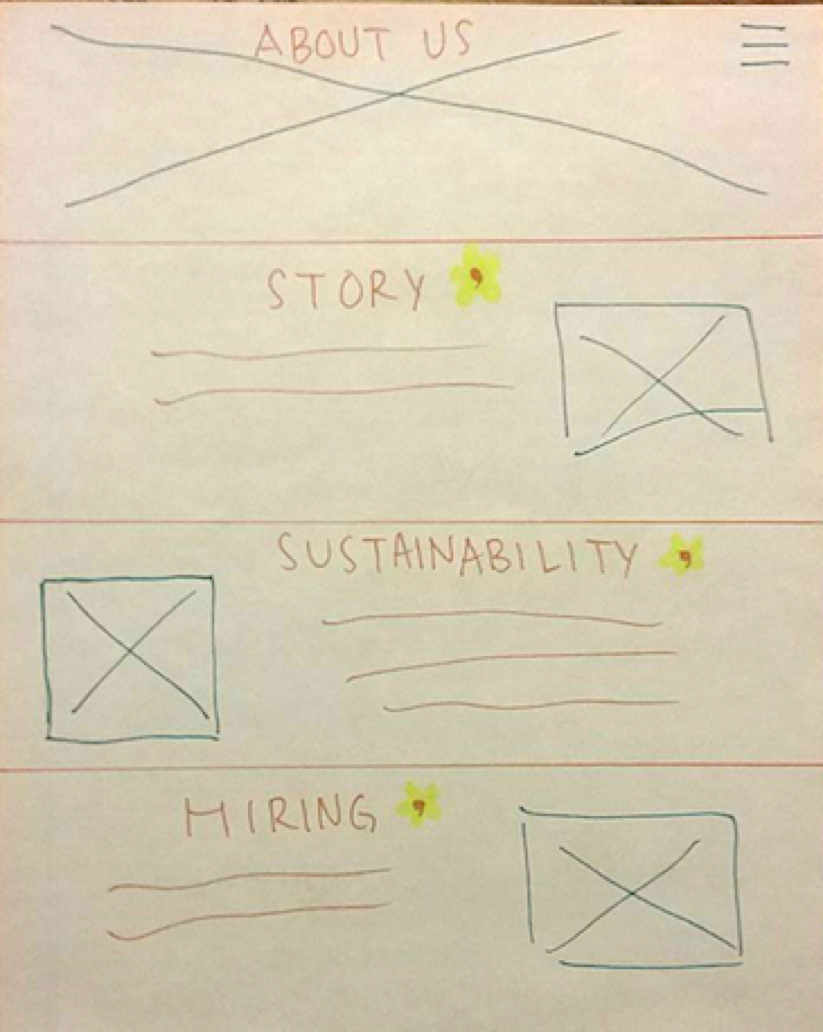 ABOUT US
STORY
SUSTAINABILITY
HIRING